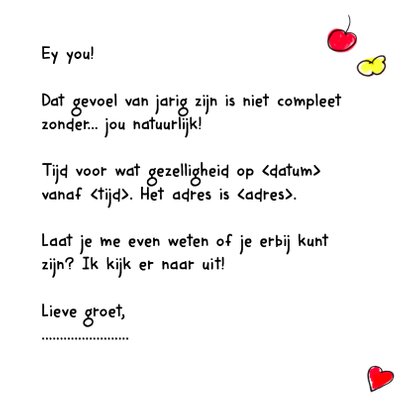 Ey you!
Dat gevoel van jarig zijn is niet compleet
zonder... jou natuurlijk!
Tijd voor wat gezelligheid op <datum>
vanaf <tijd>. Het adres is <adres>.
Laat je me even weten of je erbij kunt
zijn? Ik kijk er naar uit!
Lieve groet,
........................